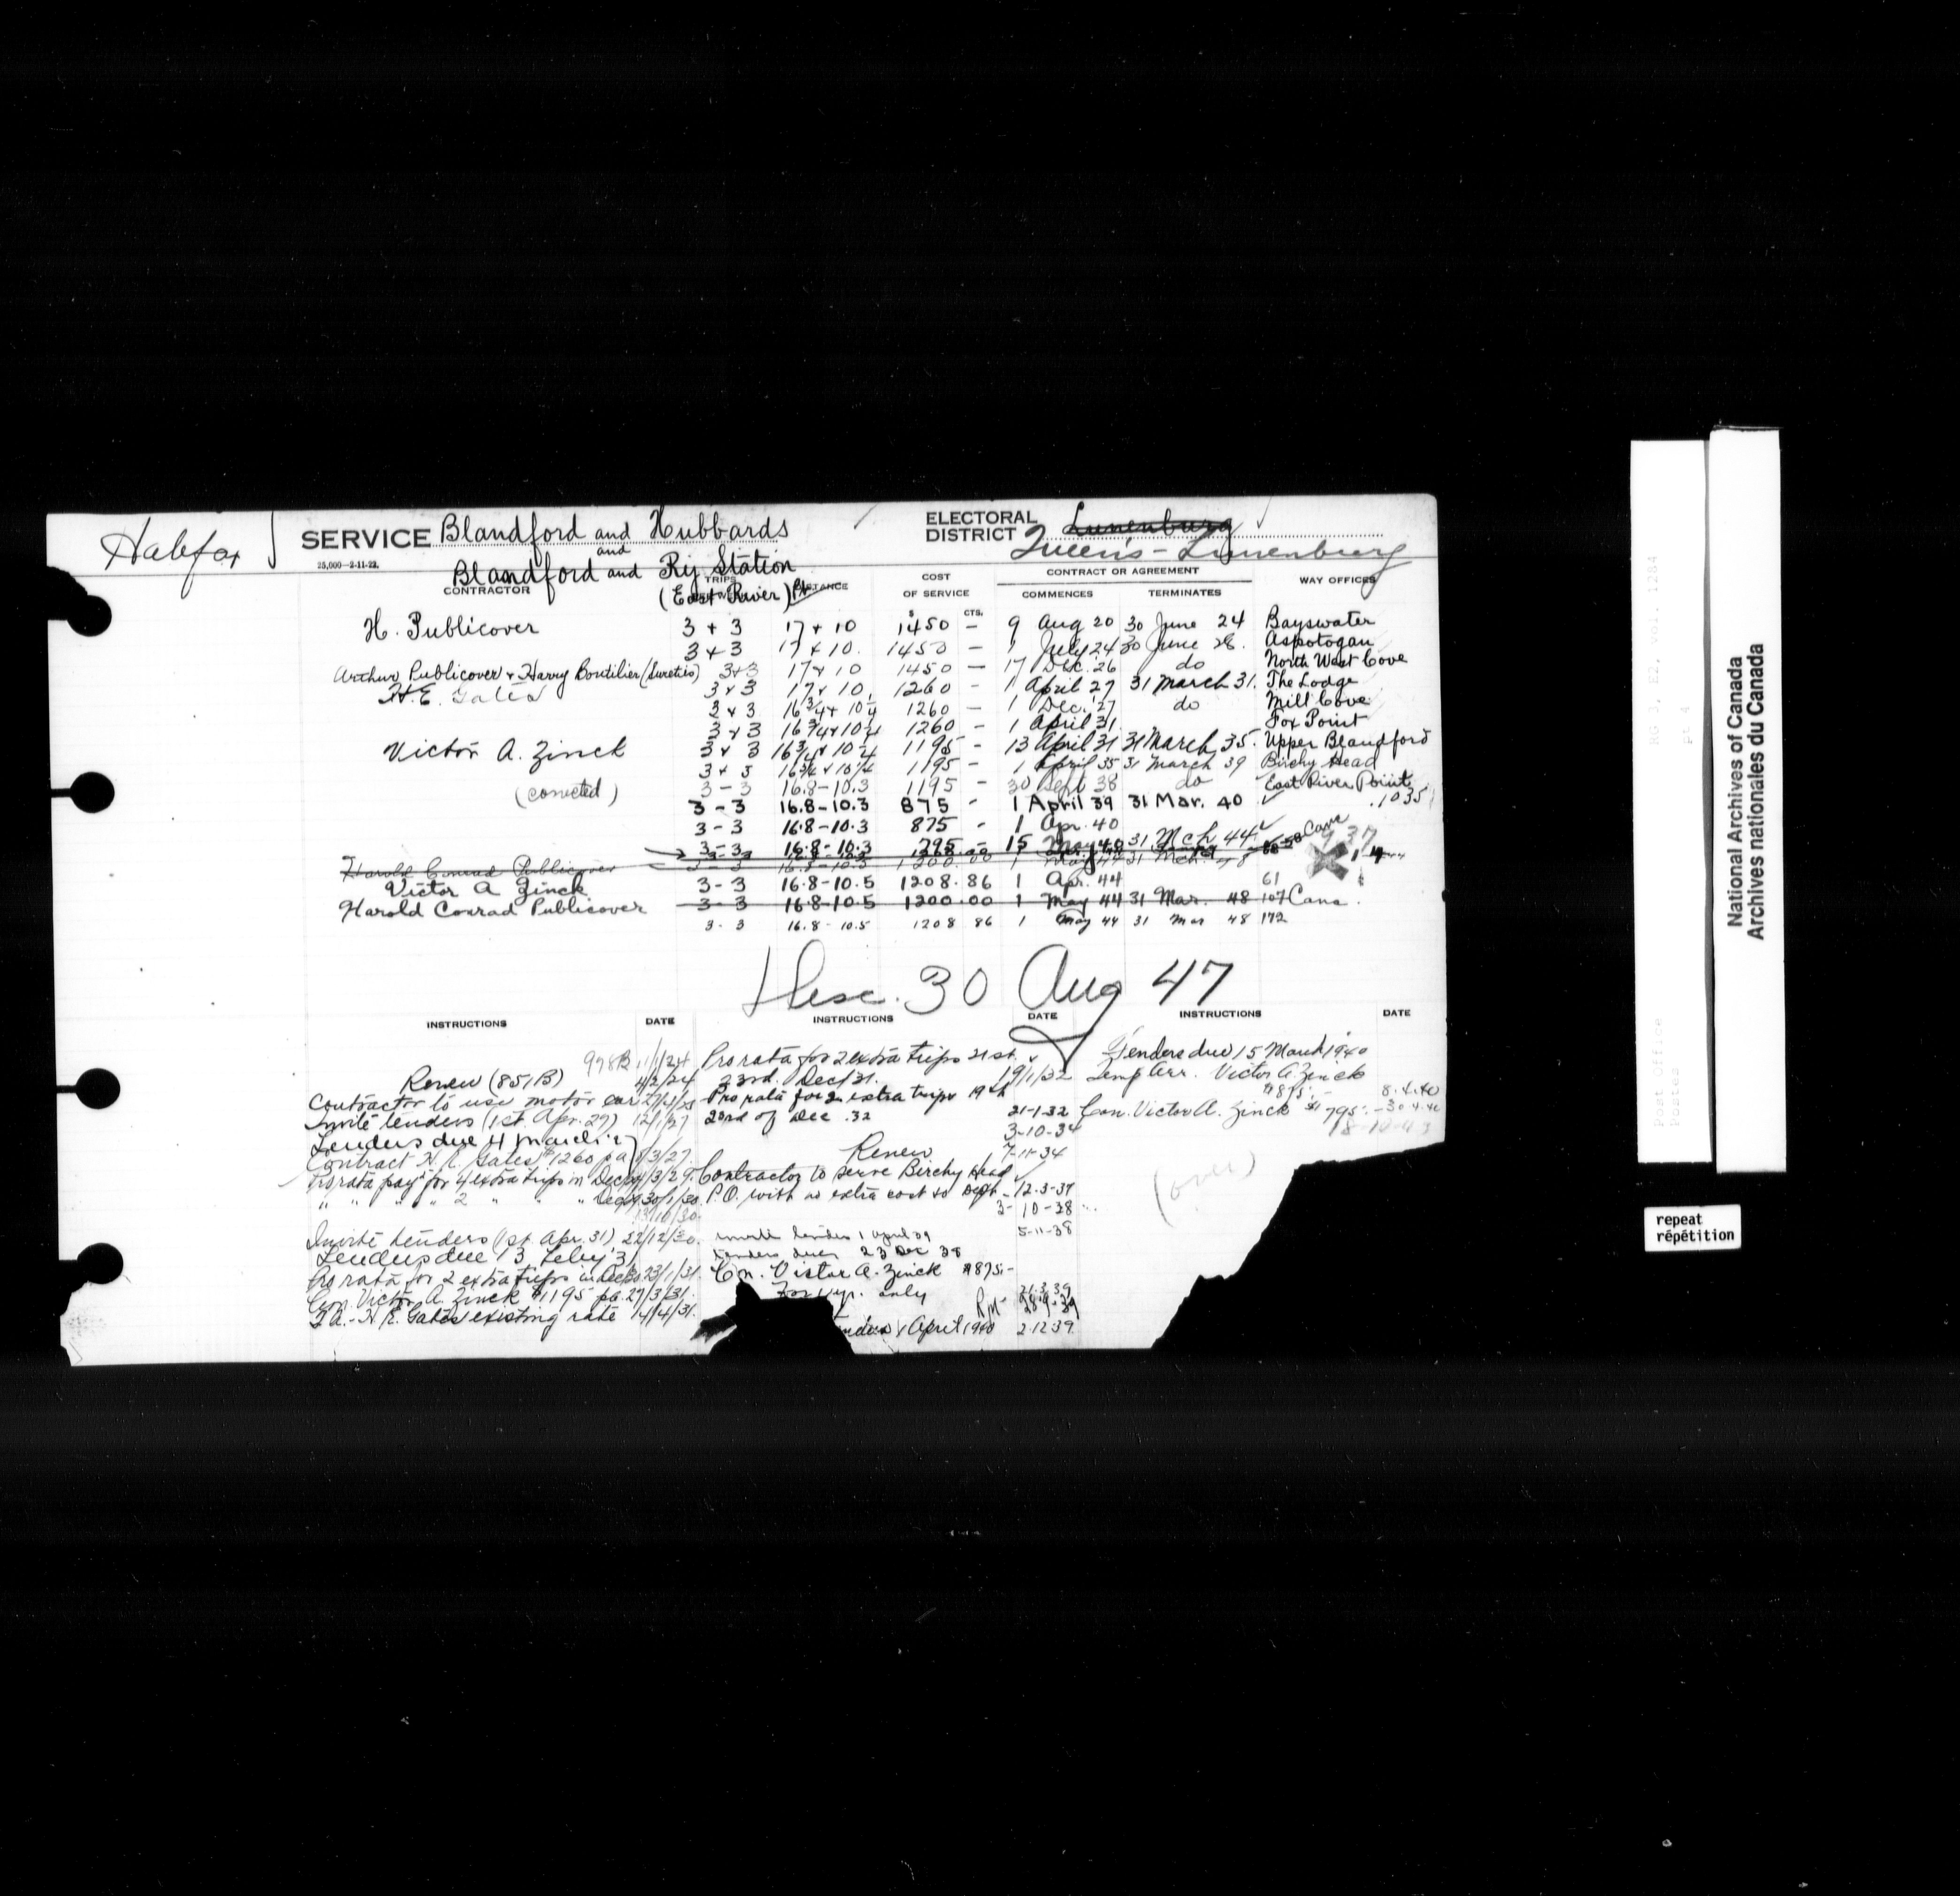 Halifax
SERVICE Blandford and Hubbards
and
Blandford and Ry Station
(East River) Pt.
25,000—2-11-22.
ELECTORAL DISTRICT Lunenburg
Queens - Lunenburg
CONTRACTOR TRIPS DISTANCE COST OF SERVICE CONTRACT OR AGREEMENT WAY OFFICES
$ CTS. COMMENCES TERMINATES
H. Publicover 3 + 3 17 + 10 1450 — 9 Aug 20 30 June 24 Bayswater
3 + 3 17 + 10. 1450 — 1 July 24 30 June 28. Aspotogan
Arthur Publicover + Harry Boutilier (Sureties) 3+3 17 + 10 1450 — 17 Dec. 26 do North West Cove
H.E. Gates 3 + 3 17 + 10, 1260 — 1 April 27 31 March 31. The Lodge
3 + 3 16 3/4 + 10 1/4 1260 — 1 Dec. '27 do Mill Cove
3 + 3 16 3/4 + 10 1/4 1260 — 1 April 31. Fox Point
Victor A. Zinck 3 + 3 16 3/4 + 10 1/4 1195 - 13 April 31 31 March 35. Upper Blandford
3 + 3 16 3/4 + 10 1/4 1195 - 1 April 35 31 March 39 Birchy Head
(corrected) 3 - 3 16.8-10.3 1195 - 30 Sept 38 do East River Point
3 - 3 16.8-10.3 875 - 1 April 39 31 Mar. 40 1035
3 - 3 16.8-10.3 875 - 1 Apr. 40
3 - 3 16.8-10.3 795.- 15 May 40 31 Mch 44 Canc
Harold Conrad Publicover 3 - 3 16.8-10.3 1200.00 1 May 44 31 Mch
Victor A Zinck 3 - 3 16.8-10.5 1208.86 1 Apr. 44 61
Harold Conrad Publicover 3 - 3 16.8-10.5 1200.00 1 May 44 31 Mar. 48 107 Canc.
3 - 3 16.8 - 10.5 1208 86 1 May 44 31 Mar 48 172
Desc. 30 Aug 47
INSTRUCTIONS DATE INSTRUCTIONS DATE INSTRUCTIONS DATE
978B 11/1/24
Renew (851B) 4/2/24
Contractor to use motor car
Invite tenders (1st. Apr. 27) 12/1/27
Tenders due 4 March
Contract H. E. Gates $1260 pa
Pro rata pay for 4 extra trips in Dec
" " " " 2 " " Dec 30/1/30.
13/10/30
Invite tenders (1st. Apr. 31) 22/12/30.
Tenders due 13 Feby 31
Pro rata for 2 extra trips in Dec 30 23/1/31.
Con. Victor A. Zinck $1195 pa. 27/3/31.
T.A. - H.E. Gates existing rate 14/4/31.
Pro rata for 2 extra trips 21st.
23rd. Dec/31. 19/1/32
Pro rata for 2 extra trips 19th
23rd of Dec .32
21-1-32
3-10-34
Renew 7-11-34
Contractor to serve Birchy Head
P.O. with no extra cost to Dept. 12-3-37
3-10-38
5-11-38
Invite tenders 1 April 39
tenders due 23 Dec 38
Con. Victor A. Zinck $875.-
For 1 yr. only 21-3-39
Rnt 28-9-39
April 1940 2-12-39
Tenders due 15 March 1940
Temp Arr. Victor A. Zinck
$875.- 8.4.40
Con. Victor A. Zinck $795.- 30.4.40
18-10-43
(over)
RG 3, E2, vol. 1284
pt 4
Post Office
Postes
National Archives of Canada
Archives nationales du Canada
repeat
répétition